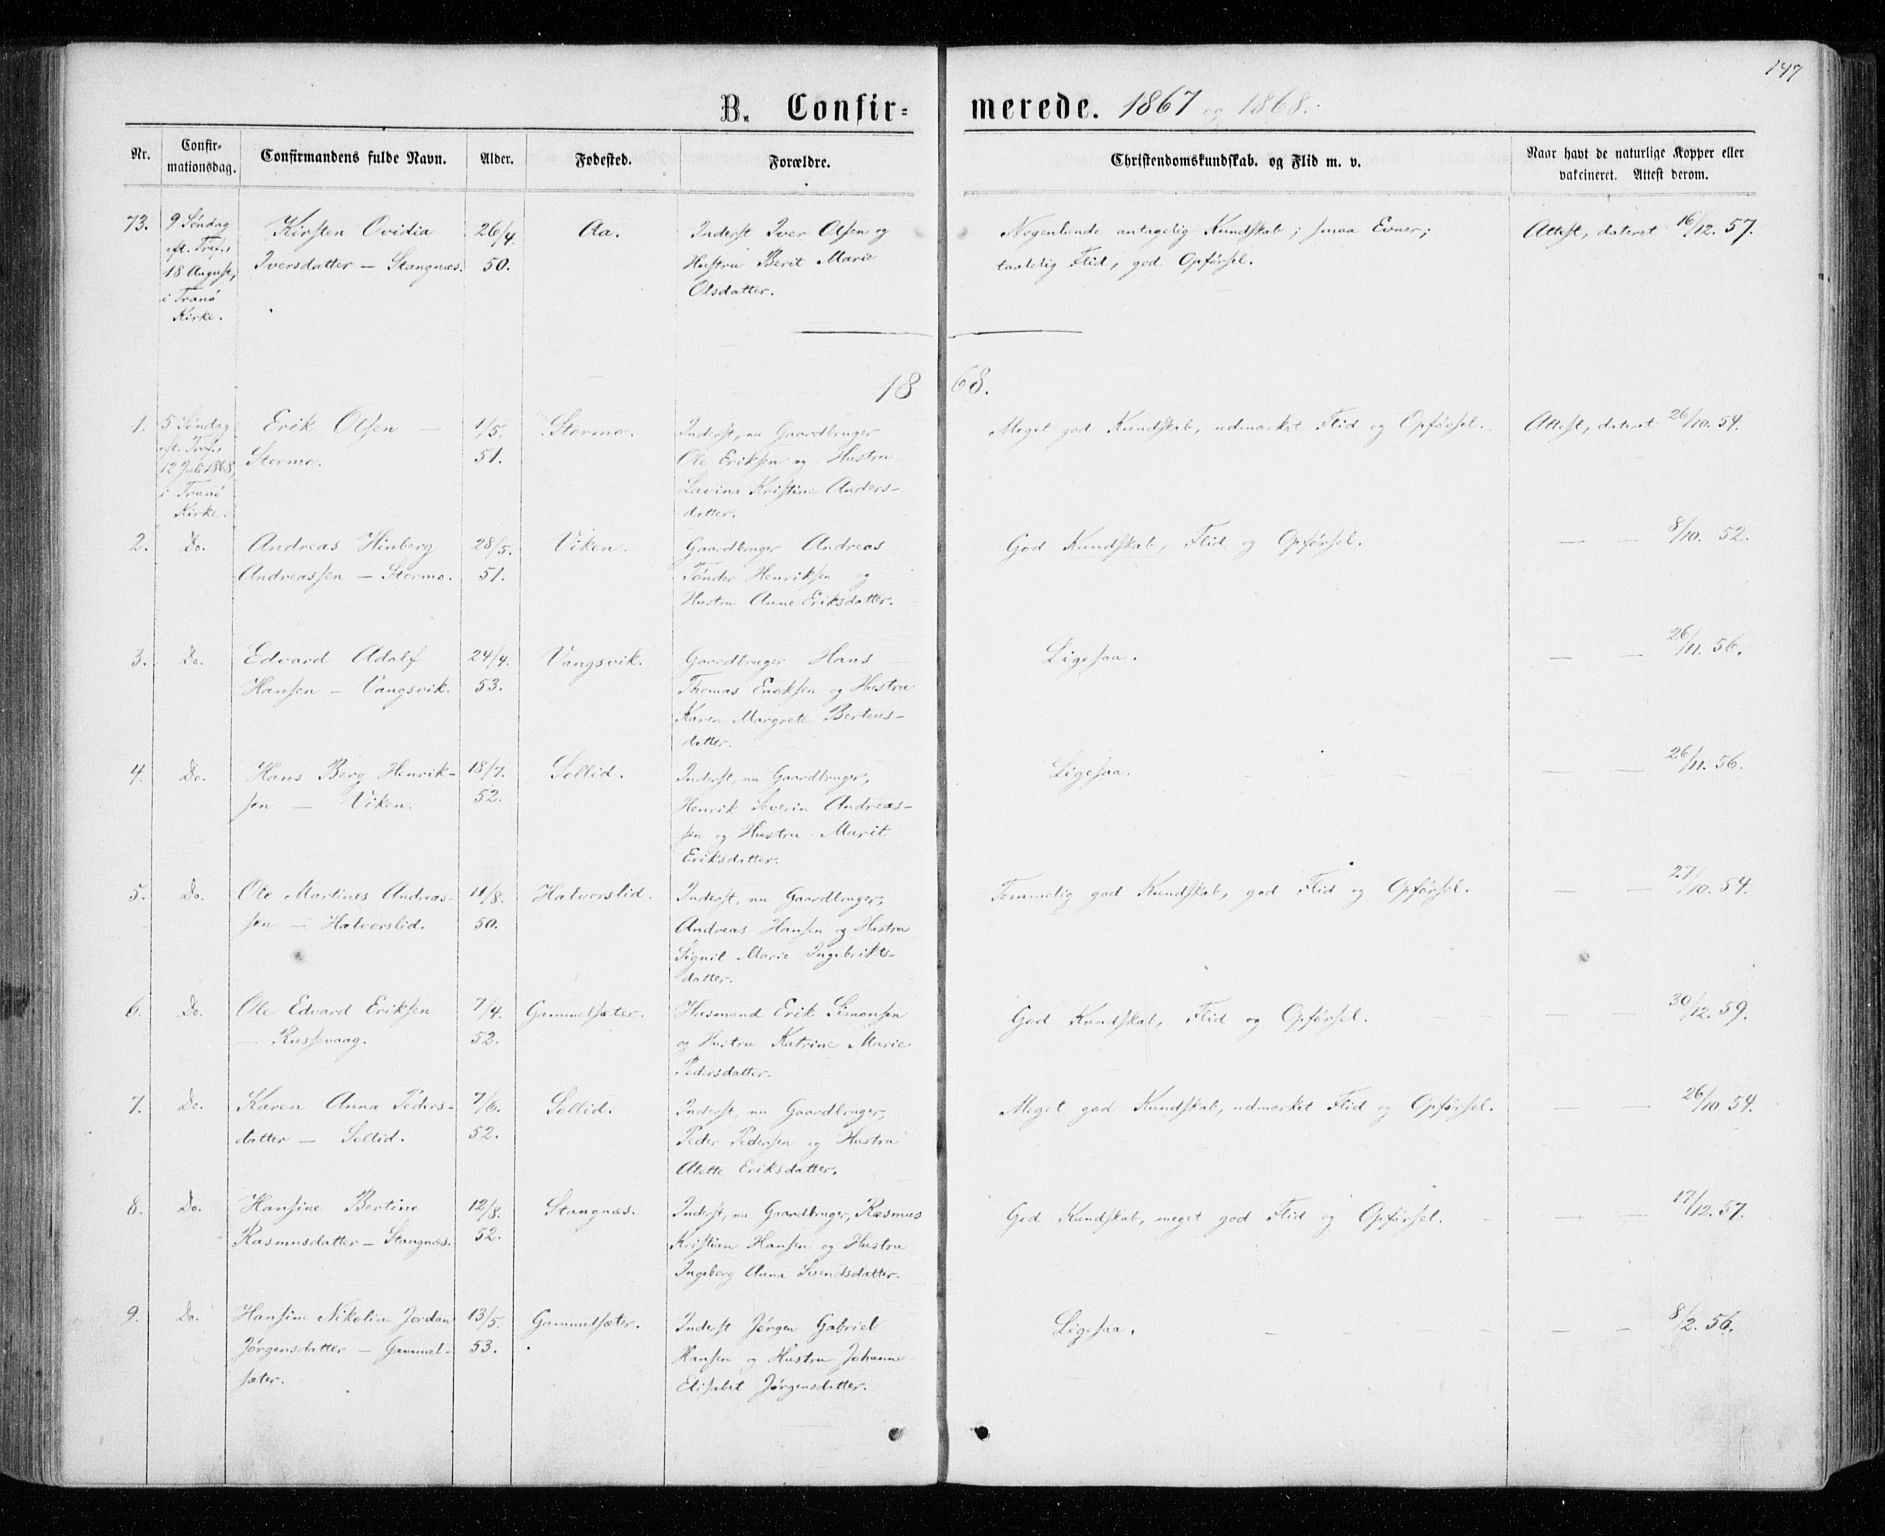 147
B. Confir=merede. 1867 og 1868.
Nr.
Confir-
mationsdag.
Confirmandens fulde Navn.
Alder.
Fødested.
Forældre.
Christendomskundskab. og Flid m. v.
Naar havt de naturlige Kopper eller
vakcineret. Attest derom.
73.
9 Søndag
eft. Tref.,
18 August,
i Tranø
Kirke.
Kirsten Ovidia
Iversdatter – Stangnæs.
26/4.
50.
Aa.
Inderst Iver Olsen og
Hustru Berit Marie
Olsdatter.
Nogenlunde antagelig Kundskab; smaa Evner;
taalelig Flid, god Opførsel.
Attest, dateret 16/12. 57.
1868.
1.
5 Søndag
eft. Tref.,
12 Juli 1868,
i Tranø
Kirke.
Erik Olsen –
Stormo.
1/5.
51.
Stormo.
Inderst, nu Gaardbruger
Ole Eriksen og Hustru
Lavina Kristine Anders-
datter.
Meget god Kundskab, udmærket Flid og Opførsel.
Attest, dateret 26/10. 54.
2.
Do.
Andreas Hinberg
Andreassen – Stormo.
28/5.
51.
Viken.
Gaardbruger Andreas
Tønder Henriksen og
Hustru Anne Eriksdatter.
God Kundskab, Flid og Opførsel.
— — 8/10. 52.
3.
Do.
Edvard Adolf
Hansen – Vangsvik.
24/4.
53.
Vangsvik.
Gaardbruger Hans
Thomas Enoksen og Hustru
Karen Margrete Berteus-
datter.
Ligesaa.
— — 26/11. 56.
4.
Do.
Hans Berg Henrik-
sen – Viken.
18/7.
52.
Sollid.
Inderst, nu Gaardbruger,
Henrik Severin Andreas-
sen og Hustru Marit
Eriksdatter.
Ligesaa.
— — 26/11. 56.
5.
Do.
Ole Martines Andreas-
sen – Halvorslid.
11/8.
50.
Halvorslid.
Inderst, nu Gaardbruger,
Andreas Hansen og Hustru
Signil Marie Ingebrikts-
datter.
Temmelig god Kundskab, god Flid og Opførsel.
— — 27/10. 54.
6.
Do.
Ole Edvard Eriksen
– Russevaag.
7/4.
52.
Gammelsæter.
Husmand Erik Simonsen
og Hustru Katrine Marie
Pedersdatter.
God Kundskab, Flid og Opførsel.
— — 30/12. 59.
7.
Do.
Karen Anna Peders-
datter – Sollid.
7/6.
52.
Sollid.
Inderst, nu Gaardbruger,
Peder Pedersen og Hustru
Alette Eriksdatter.
Meget god Kundskab, udmærket Flid og Opførsel.
— — 26/10. 54.
8.
Do.
Hansine Bertine
Rasmusdatter – Stangnæs.
12/8.
52.
Stangnæs.
Inderst, nu Gaardbruger, Rasmus
Kristian Hansen og Hustru
Ingeberg Anna Svendsdatter.
God Kundskab, meget god Flid og Opførsel.
— — 17/12. 57.
9.
Do.
Hansine Nikoline Jordan
Jørgensdatter – Gammel-
sæter.
13/5.
53.
Gammelsæter.
Inderst Jørgen Gabriel
Hansen og Hustru Johanne
Elisabet Jørgensdatter.
Ligesaa.
— — 8/2. 56.